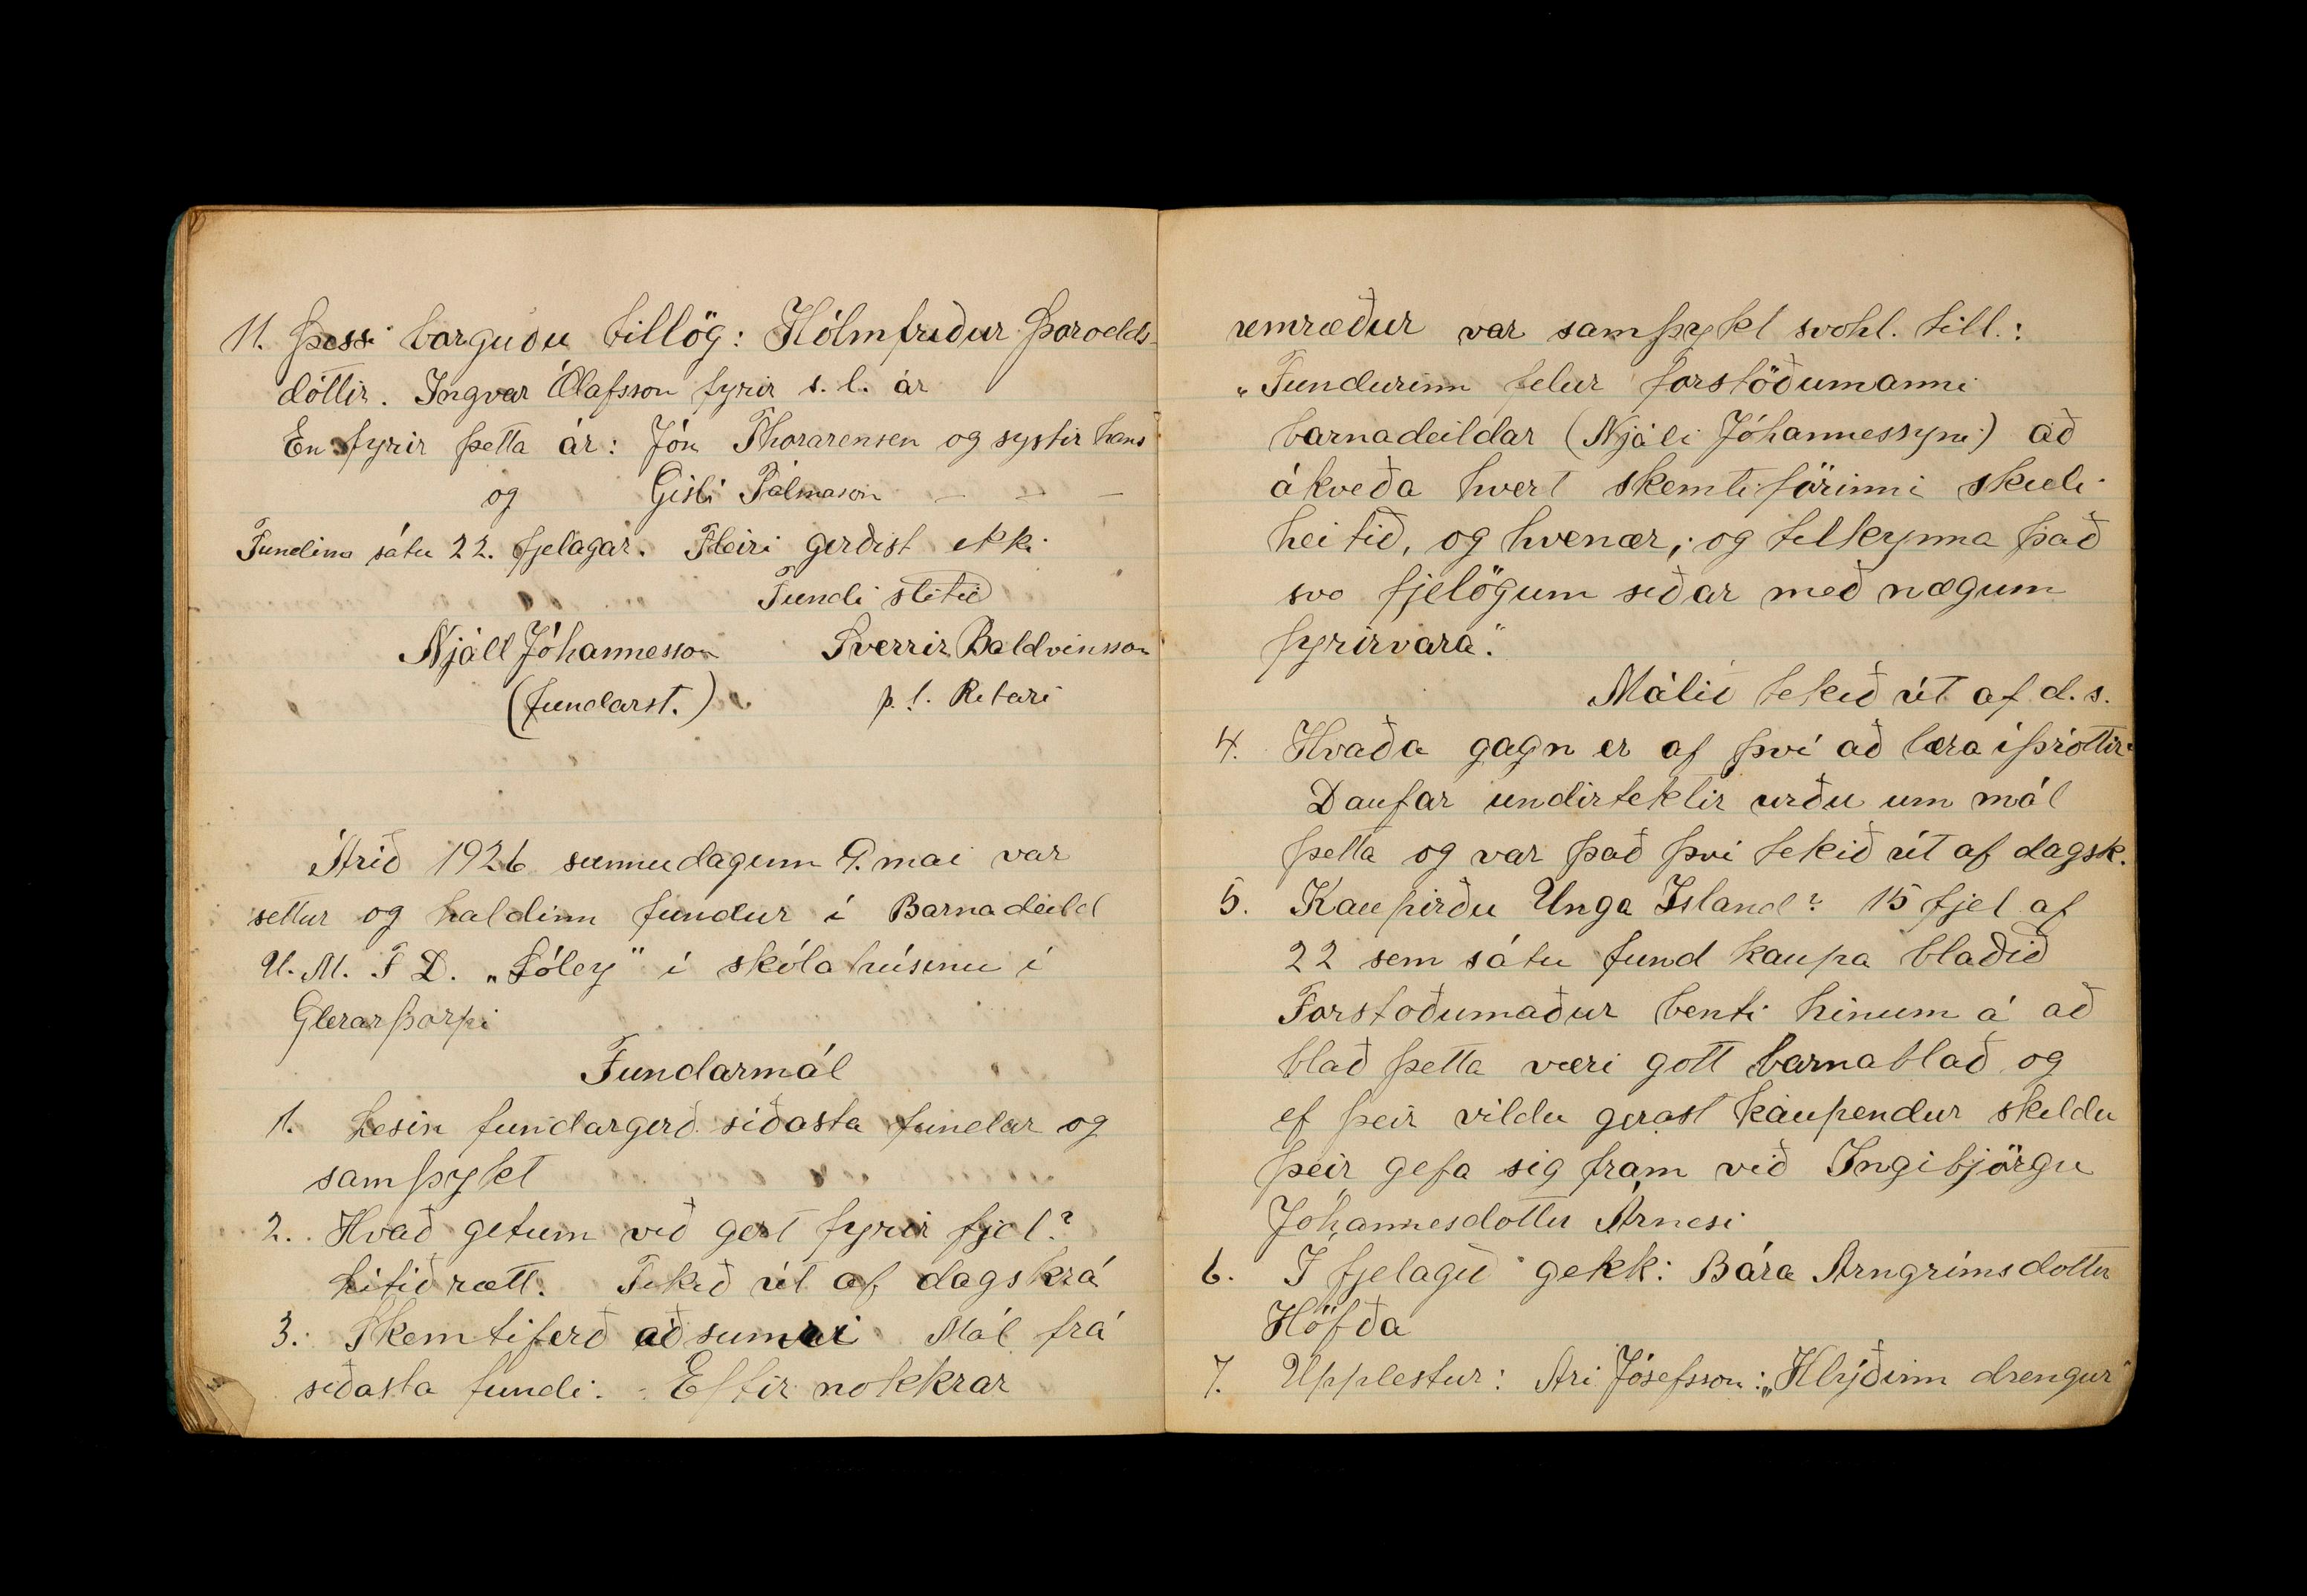 11. Þessi borguðu tillög: Hólmfriður Þorodds-
dóttir. Ingvar Ólafsson fyrir s.l. ár
En fyrir þetta ár: Jón Thorarensen og systir hans
og Gisli Pálmason — — —
Fundinn sátu 22. fjelagar. Fleiri gerðist ekki
Fundi slitið
Njáll Jóhannesson Sverrir Baldvinsson
(fundarst.) p.t. Ritari
Árið 1926 sunnudagum 9. mai var
settur og haldinn fundur í Barnadeild
U.M.F D. „Sóley" í skólahúsinu í
Glerarþorpi
Fundarmál
1. Lesin fundargerð síðasta fundar og
samþykt
2. Hvað getum við gert fyrir fjel?
Litið rætt. Tekið út af dagskrá
3. Skemtiferð að sumri Mál frá
síðasta fundi. Eftir nokkrar
umræður var samþykt svohl. till.:
„Fundurinn felur forstöðumanni
barnadeildar (Njáli Jóhannessyni) að
ákveða hvert skemtiförinni skuli
heitið, og hvenær; og tilkynna það
svo fjelögum siðar með nægum
fyrirvara."
Málið tekið út af d.s.
4. Hvaða gagn er af því að læra íþróttir
Daufar undirtektir urðu um mál
þetta og var það því tekið út af dagsk.
5. Kaupirðu Unga Island? 15 fjel af
22 sem sátu fund kaupa blaðið
Forstoðumaður benti hinum á að
blað þetta væri gott barnablað og
ef þeir vildu gerast kaupendur skildu
þeir gefa sig fram við Ingibjörgu
Jóhannesdottur Árnesi
6. I fjelagið gekk: Bára Arngrímsdottir
Höfða
7. Upplestur: Ari Jósefsson: „Hlýðinn drengur"